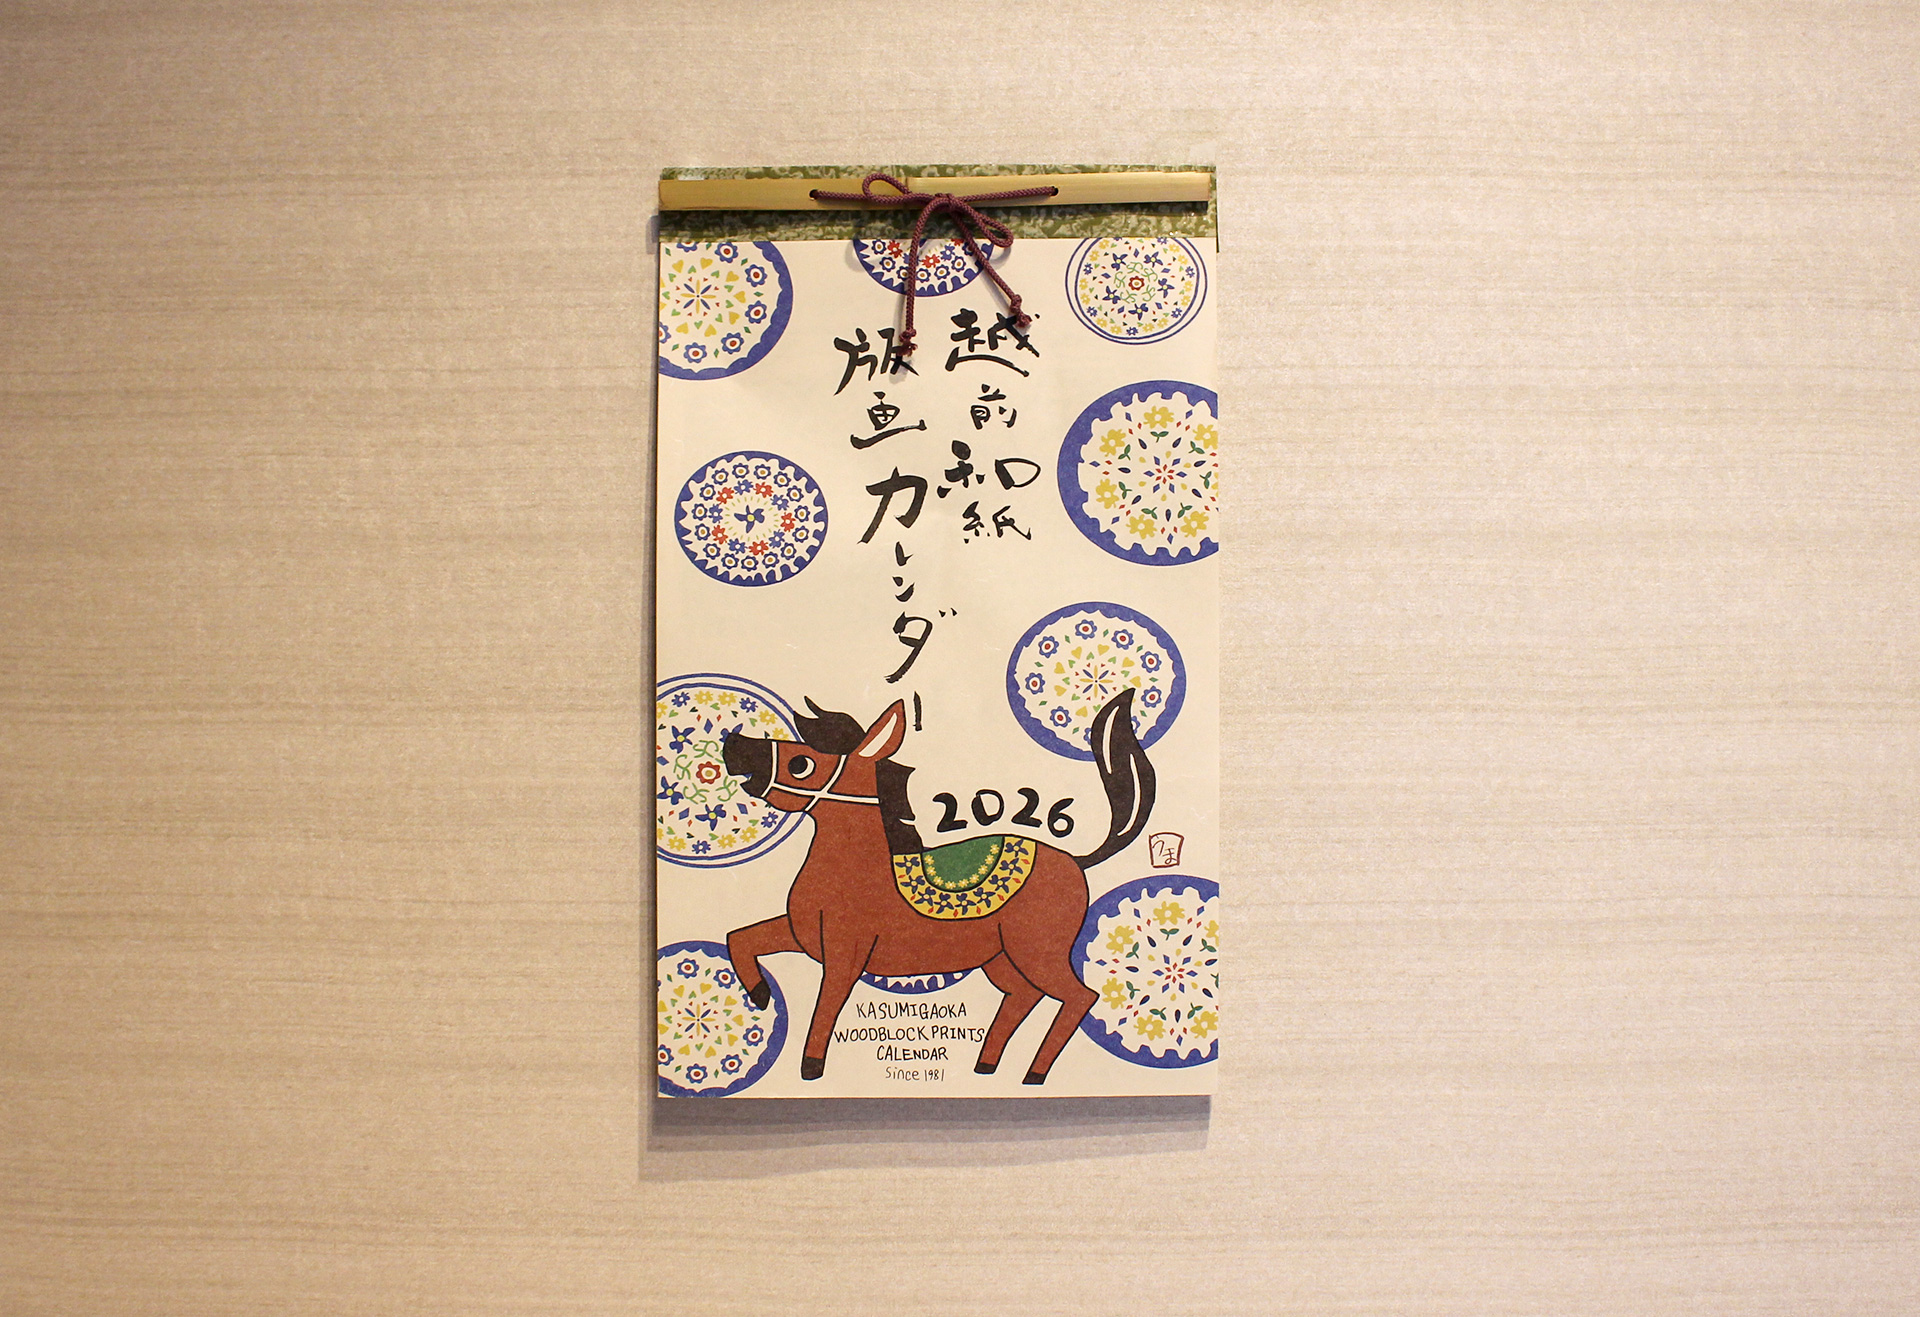 越前和紙
版画カレンダー
2026
うま
KASUMIGAOKA
WOODBLOCK PRINTS
CALENDAR
Since 1981